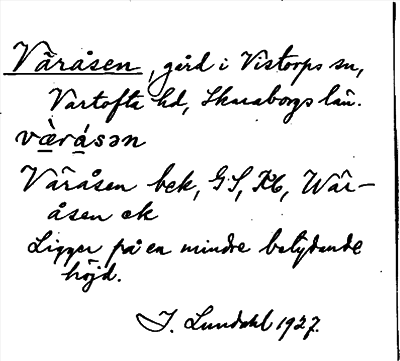 Våråsen, gård i Vistorps sn,
Vartofta hd, Skaraborgs län.
væ̀rásən
Våråsen bek, GS, Wår-
åsen ek
Ligger på en mindre betydande
höjd.
J. Lundahl 1927.